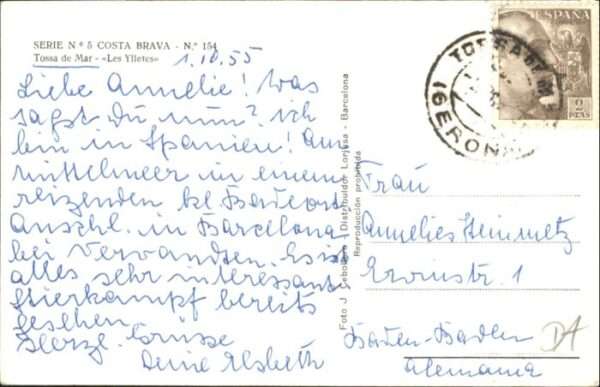 SERIE Nº 5 COSTA BRAVA - N.º 154
Tossa de Mar - «Les Ylletes»
1.10.55
Liebe Annelie! Was
sagst Du nun? ich
bin in Spanien! Am
Mittelmeer in einem
reizenden kl. Badeort
Anschl. in Barcelona
bei Verwandten. Es ist
alles sehr interessant
Stierkampf bereits
gesehen
Herzl. Grüsse
Deine Elsbeth
Foto J. Distribuidor Lorjusa - Barcelona
Reproducción prohibida
ESPAÑA
2
PTAS
TOSSA DE MAR
(GERONA)
Frau
Annelies Steinmetz
Erwinstr. 1
Baden-Baden
Alemania
DA